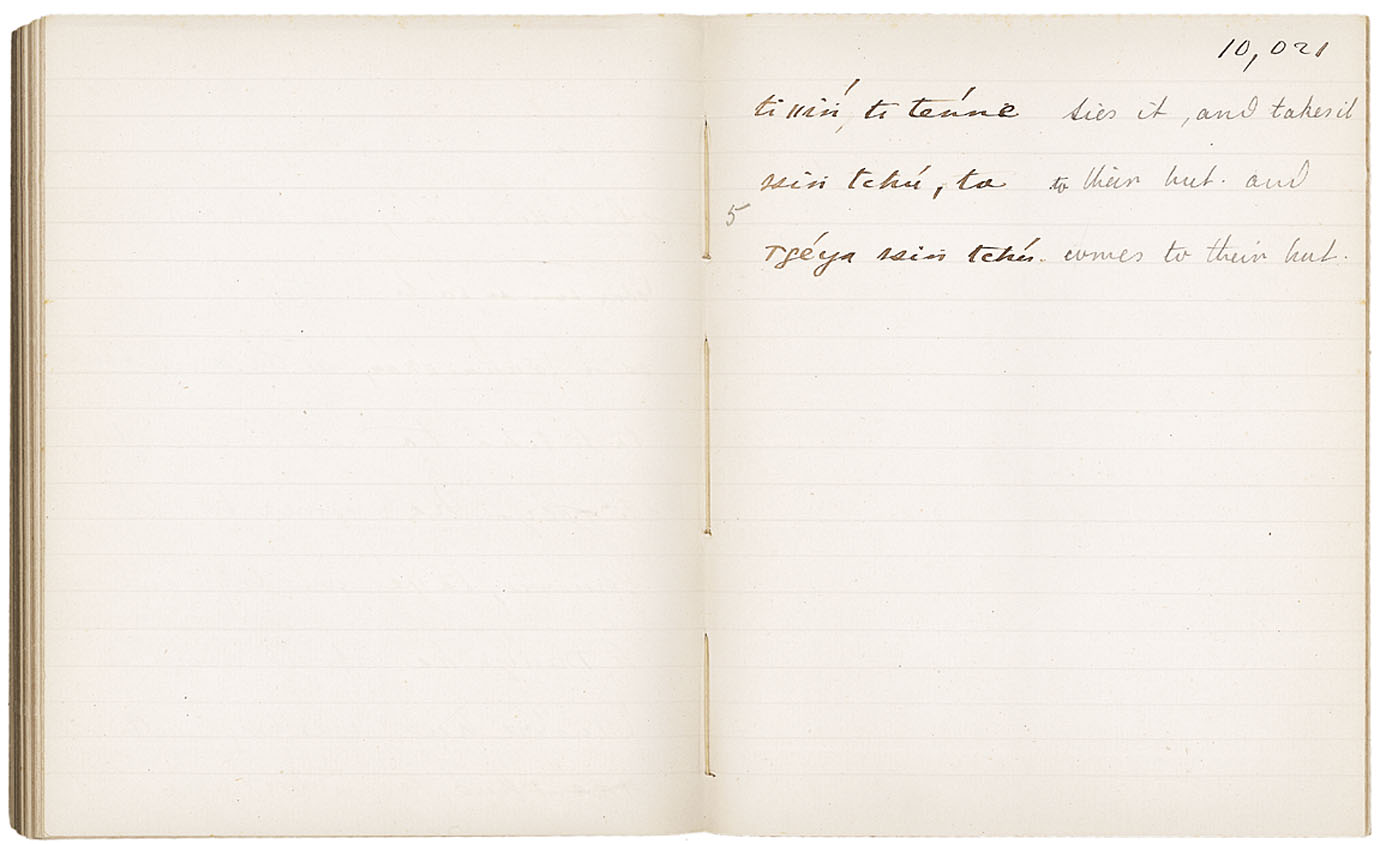 10,021
ti ńiń, ti teńne ties it, and takes it
ssin tchú, ta to their hut. and
5
Tgéya ssin tchú. comes to their hut.